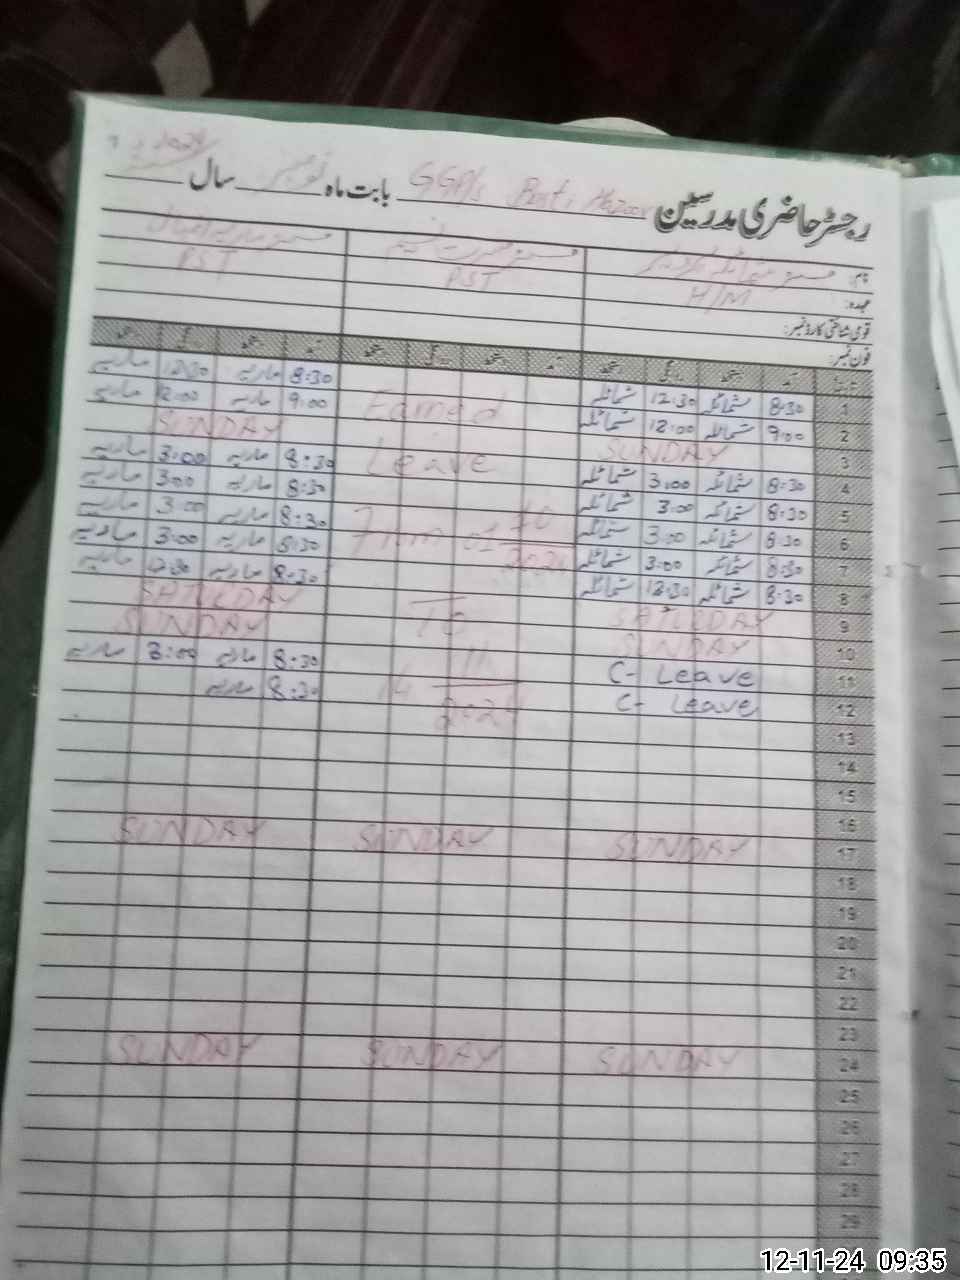 رجسٹر حاضری مدرسین GGP/s Basti بابت ماہ نومبر سال 2024
نام: مسز شمائلہ مسز مسز ماریہ
عہدہ: H/M PST PST
قومی شناختی کارڈ نمبر:
فون نمبر:
1 8:30 شمائلہ 12:30 شمائلہ 8:30 ماریہ 12:30 ماریہ
2 9:00 شمائلہ 12:00 شمائلہ Earned 9:00 ماریہ 12:00 ماریہ
3 SUNDAY SUNDAY
4 8:30 شمائلہ 3:00 شمائلہ Leave 8:30 ماریہ 3:00 ماریہ
5 8:30 شمائلہ 3:00 شمائلہ 8:30 ماریہ 3:00 ماریہ
6 8:30 شمائلہ 3:00 شمائلہ From 01 10 8:30 ماریہ 3:00 ماریہ
7 8:30 شمائلہ 3:00 شمائلہ 2024 8:30 ماریہ 3:00 ماریہ
8 8:30 شمائلہ 12:30 شمائلہ 8:30 ماریہ 12:30 ماریہ
9 SATUDAY To SATUDAY
10 SUNDAY SUNDAY
11 C- Leave 14 11 8:30 ماریہ 3:00 ماریہ
12 C- Leave 2024 8:30 ماریہ
13
14
15
16
17 SUNDAY SUNDAY SUNDAY
18
19
20
21
22
23
24 SUNDAY SUNDAY SUNDAY
25
26
27
28
29
12-11-24 09:35